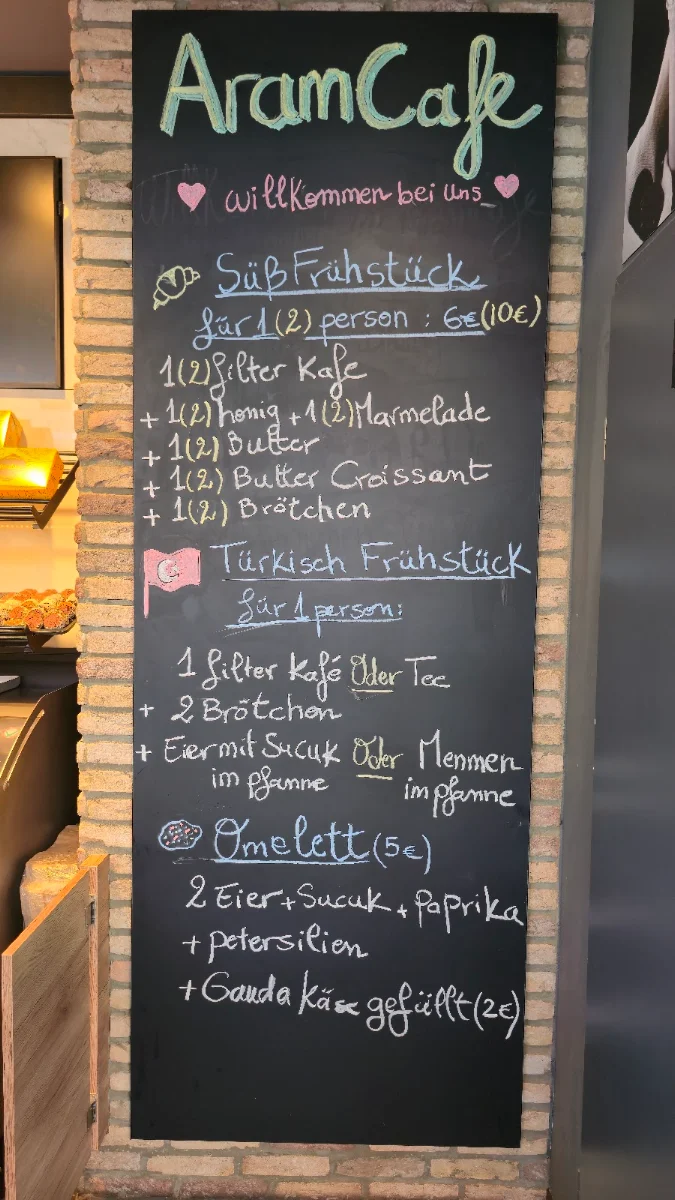 AramCafe
willkommen bei uns
Süß Frühstück
für 1 (2) person : 6€ (10€)
1(2) filter Kafe
+ 1(2) honig + 1(2) Marmelade
+ 1(2) Butter
+ 1(2) Butter Croissant
+ 1(2) Brötchen
Türkisch Frühstück
für 1 person:
1 filter Kafé Oder Tee
+ 2 Brötchen
+ Eier mit Sucuk Oder Menmen
im pfanne im pfanne
Omelett (5€)
2 Eier + Sucuk + Paprika
+ petersilien
+ Gauda Käse gefüllt (2€)